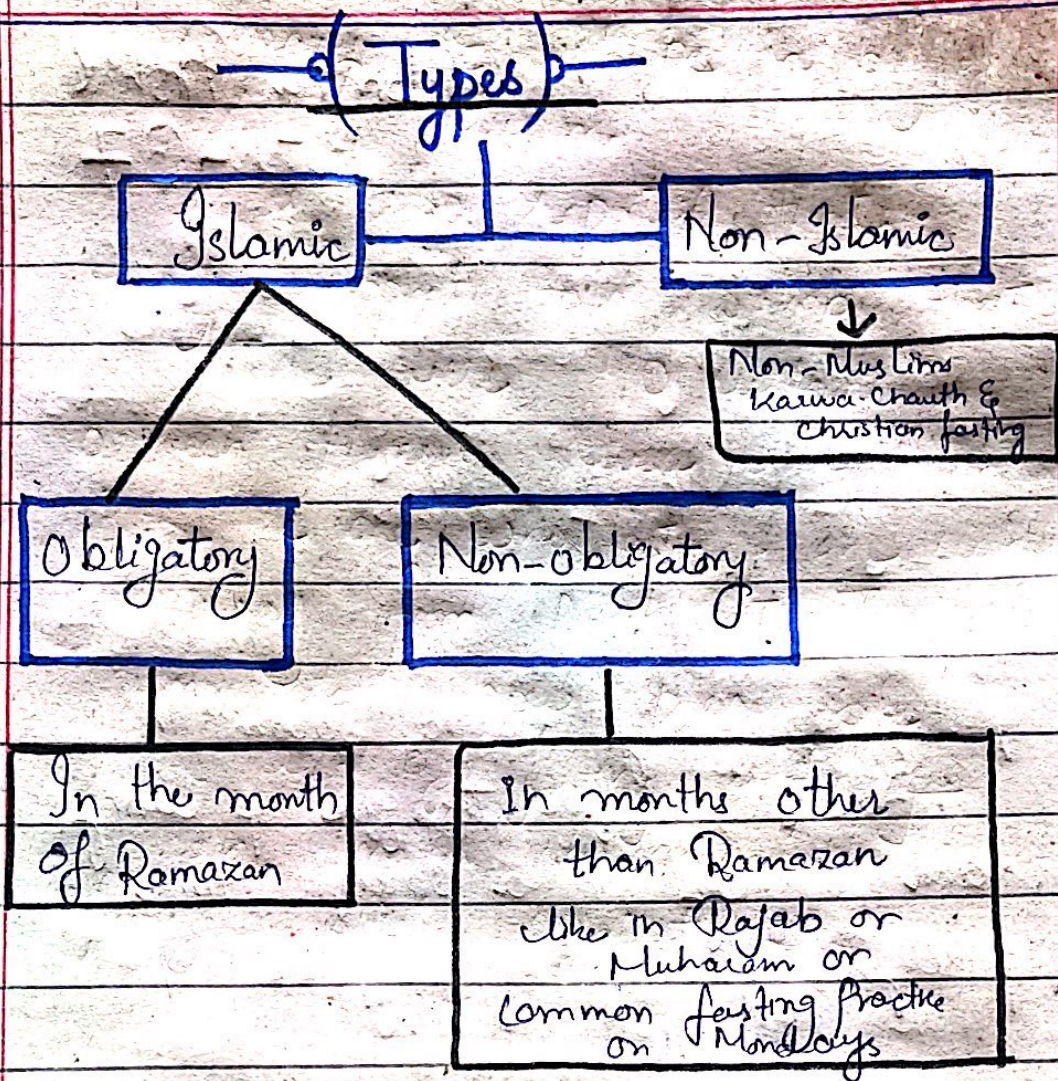 Types
Islamic
Non-Islamic
Non-Muslims
Karwa-Chauth &
Christian fasting
Obligatory
Non-obligatory
In the month
of Ramazan
In months other
than Ramazan
like in Rajab or
Muharam or
common fasting Practice
on Mondays